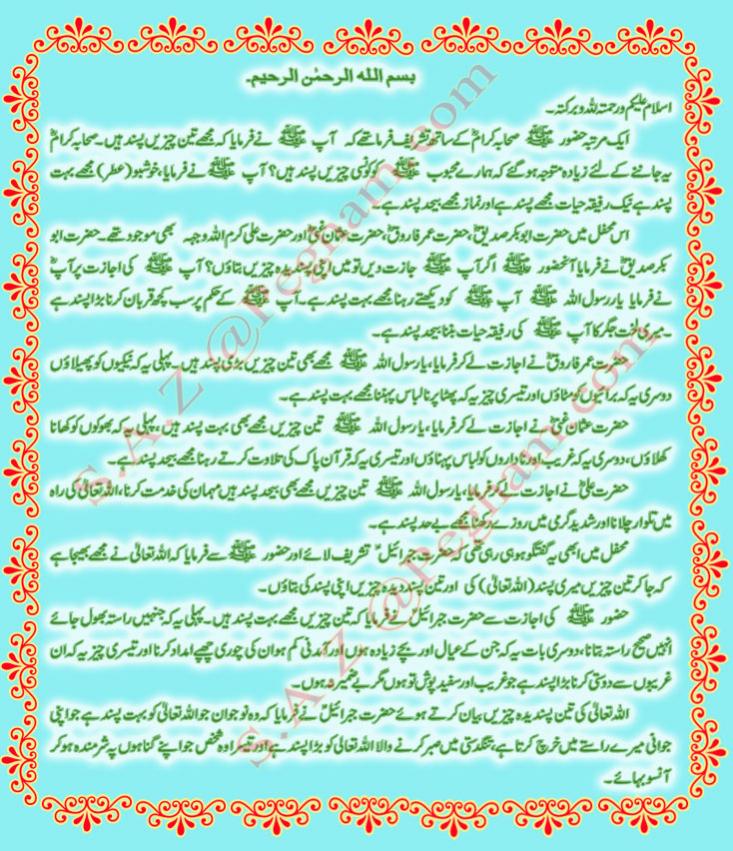 بسم الله الرحمٰن الرحیم۔
اسلام علیکم ورحمتہ للہ وبرکتہ۔
ایک مرتبہ حضور ﷺ صحابہ کرامؓ کے ساتھ تشریف فرما تھے کہ آپ ﷺ نے فرمایا کہ مجھے تین چیزیں پسند ہیں۔ صحابہ کرامؓ
یہ جاننے کے لئے زیادہ متوجہ ہو گئے کہ ہمارے محبوب ﷺ کو کونسی چیزیں پسند ہیں؟ آپ ﷺ نے فرمایا، خوشبو (عطر) مجھے بہت
پسند ہے نیک رفیقہ حیات مجھے پسند ہے اور نماز مجھے بیحد پسند ہے۔
اس محفل میں حضرت ابوبکر صدیقؓ، حضرت عمر فاروقؓ، حضرت عثمان غنیؓ اور حضرت علی کرم اللہ وجہہ بھی موجود تھے۔ حضرت ابو
بکر صدیقؓ نے فرمایا آنحضور ﷺ اگر آپ ﷺ جازت دیں تو میں اپنی پسندیدہ چیزیں بتاؤں؟ آپ ﷺ کی اجازت پر آپؓ
نے فرمایا یا رسول اللہ ﷺ آپ ﷺ کو دیکھتے رہنا مجھے بہت پسند ہے۔ آپ ﷺ کے حکم پر سب کچھ قربان کرنا بڑا پسند ہے
۔ میری لخت جگر کا آپ ﷺ کی رفیقہ حیات بننا بیحد پسند ہے۔
حضرت عمر فاروقؓ نے اجازت لے کر فرمایا، یا رسول اللہ ﷺ مجھے بھی تین چیزیں بڑی پسند ہیں۔ پہلی یہ کہ نیکیوں کو پھیلاؤں
دوسری یہ کہ برائیوں کو مٹاؤں اور تیسری چیز یہ کہ پھٹا پرانا لباس پہننا مجھے بہت پسند ہے۔
حضرت عثمان غنیؓ نے اجازت لے کر فرمایا، یا رسول اللہ ﷺ تین چیزیں مجھے بھی بہت پسند ہیں۔ پہلی یہ کہ بھوکوں کو کھانا
کھلاؤں، دوسری یہ کہ غریب اور ناداروں کو لباس پہناؤں اور تیسری یہ کہ قرآن پاک کی تلاوت کرتے رہنا مجھے بیحد پسند ہے۔
حضرت علیؓ نے اجازت لے کر فرمایا، یا رسول اللہ ﷺ تین چیزیں مجھے بھی بیحد پسند ہیں مہمان کی خدمت کرنا، اللہ تعالیٰ کی راہ
میں تلوار چلانا اور شدید گرمی میں روزے رکھنا مجھے بے حد پسند ہے۔
محفل میں ابھی یہ گفتگو ہو ہی رہی تھی کہ حضرت جبرائیلؑ تشریف لائے اور حضور ﷺ سے فرمایا کہ اللہ تعالیٰ نے مجھے بھیجا ہے
کہ جا کر تین چیزیں میری پسند (اللہ تعالیٰ) کی اور تین پسندیدہ چیزیں اپنی پسند کی بتاؤں۔
حضور ﷺ کی اجازت سے حضرت جبرائیلؑ نے فرمایا کہ تین چیزیں مجھے بہت پسند ہیں۔ پہلی یہ کہ جنہیں راستہ بھول جائے
انہیں صحیح راستہ بتانا، دوسری بات یہ کہ جن کے عیال اور بچے زیادہ ہوں اور آمدنی کم ہو ان کی چوری چھپے امداد کرنا اور تیسری چیز یہ کہ ان
غریبوں سے دوستی کرنا بڑا پسند ہے جو غریب اور سفید پوش تو ہوں مگر بے ضمیر نہ ہوں۔
اللہ تعالیٰ کی تین پسندیدہ چیزیں بیان کرتے ہوئے حضرت جبرائیلؑ نے فرمایا کہ وہ نوجوان جو اللہ تعالیٰ کو بہت پسند ہے جو اپنی
جوانی میرے راستے میں خرچ کرتا ہے، تنگدستی میں صبر کرنے والا اللہ تعالیٰ کو بڑا پسند ہے اور تیسرا وہ شخص جو اپنے گناہوں پہ شرمندہ ہو کر
آنسو بہائے۔
S.A.Z @Pegham.com
S.A.Z @Pegham.com